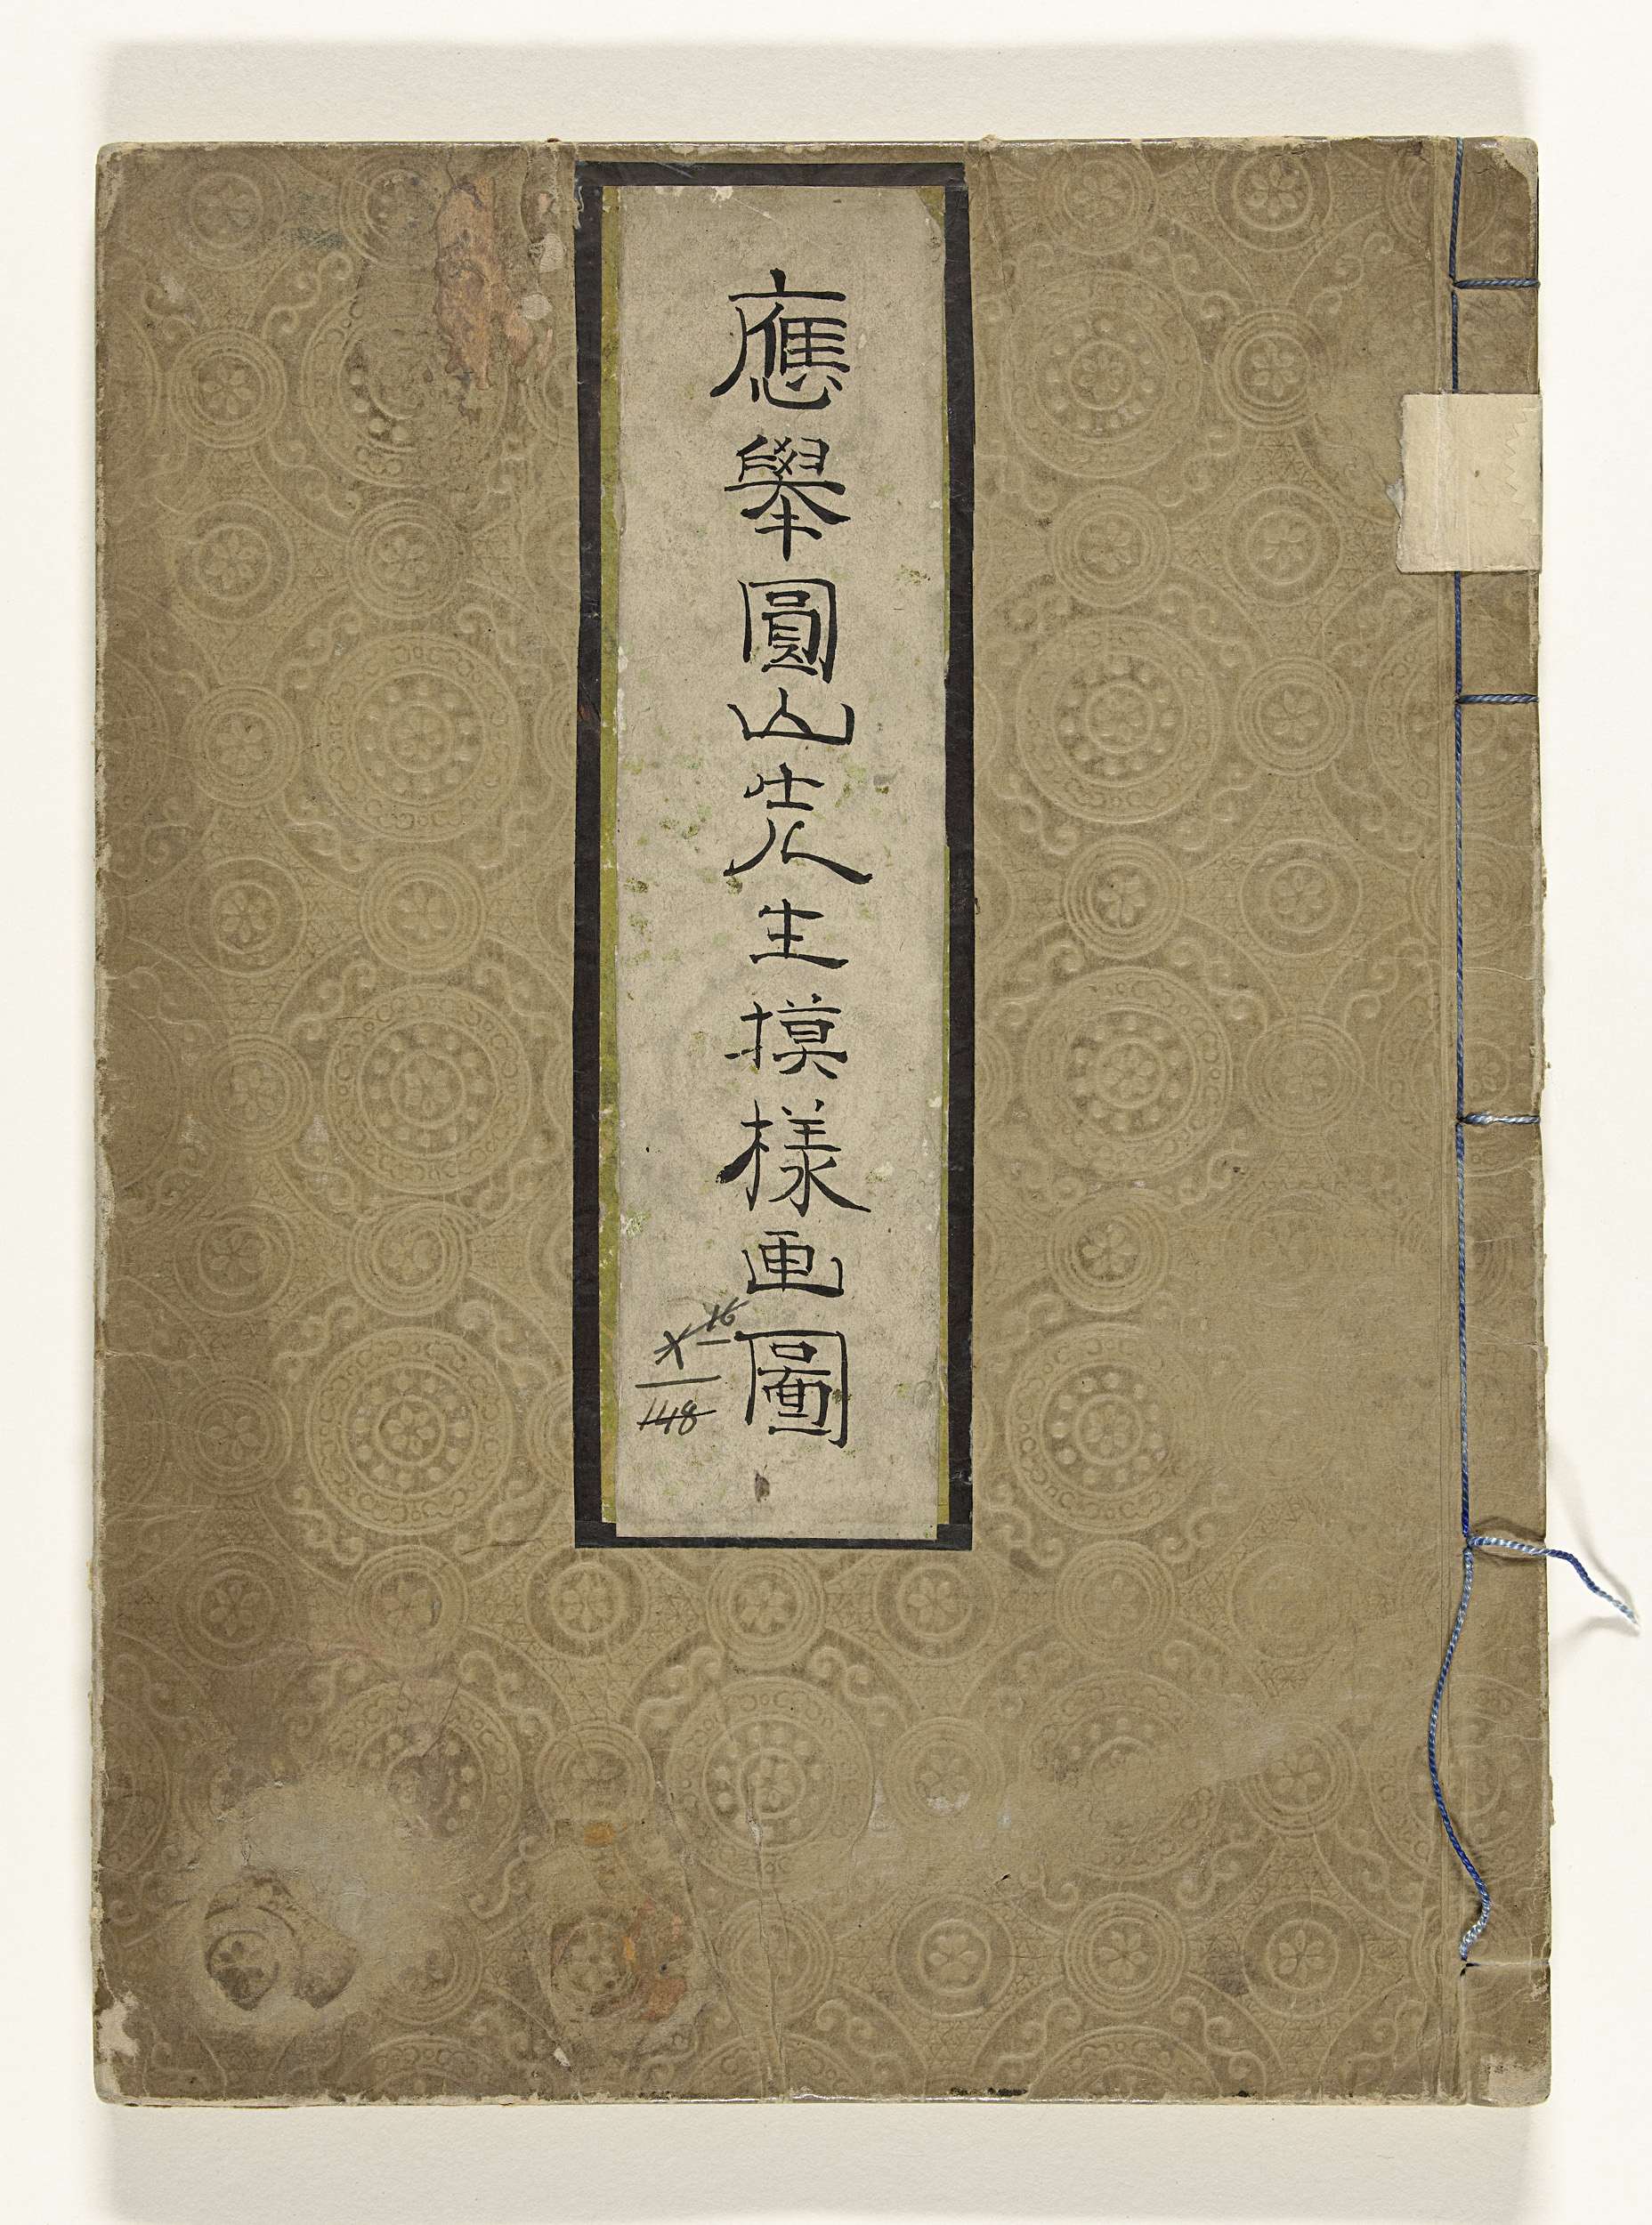 應擧圓山先生摸様画圖
X 16
148